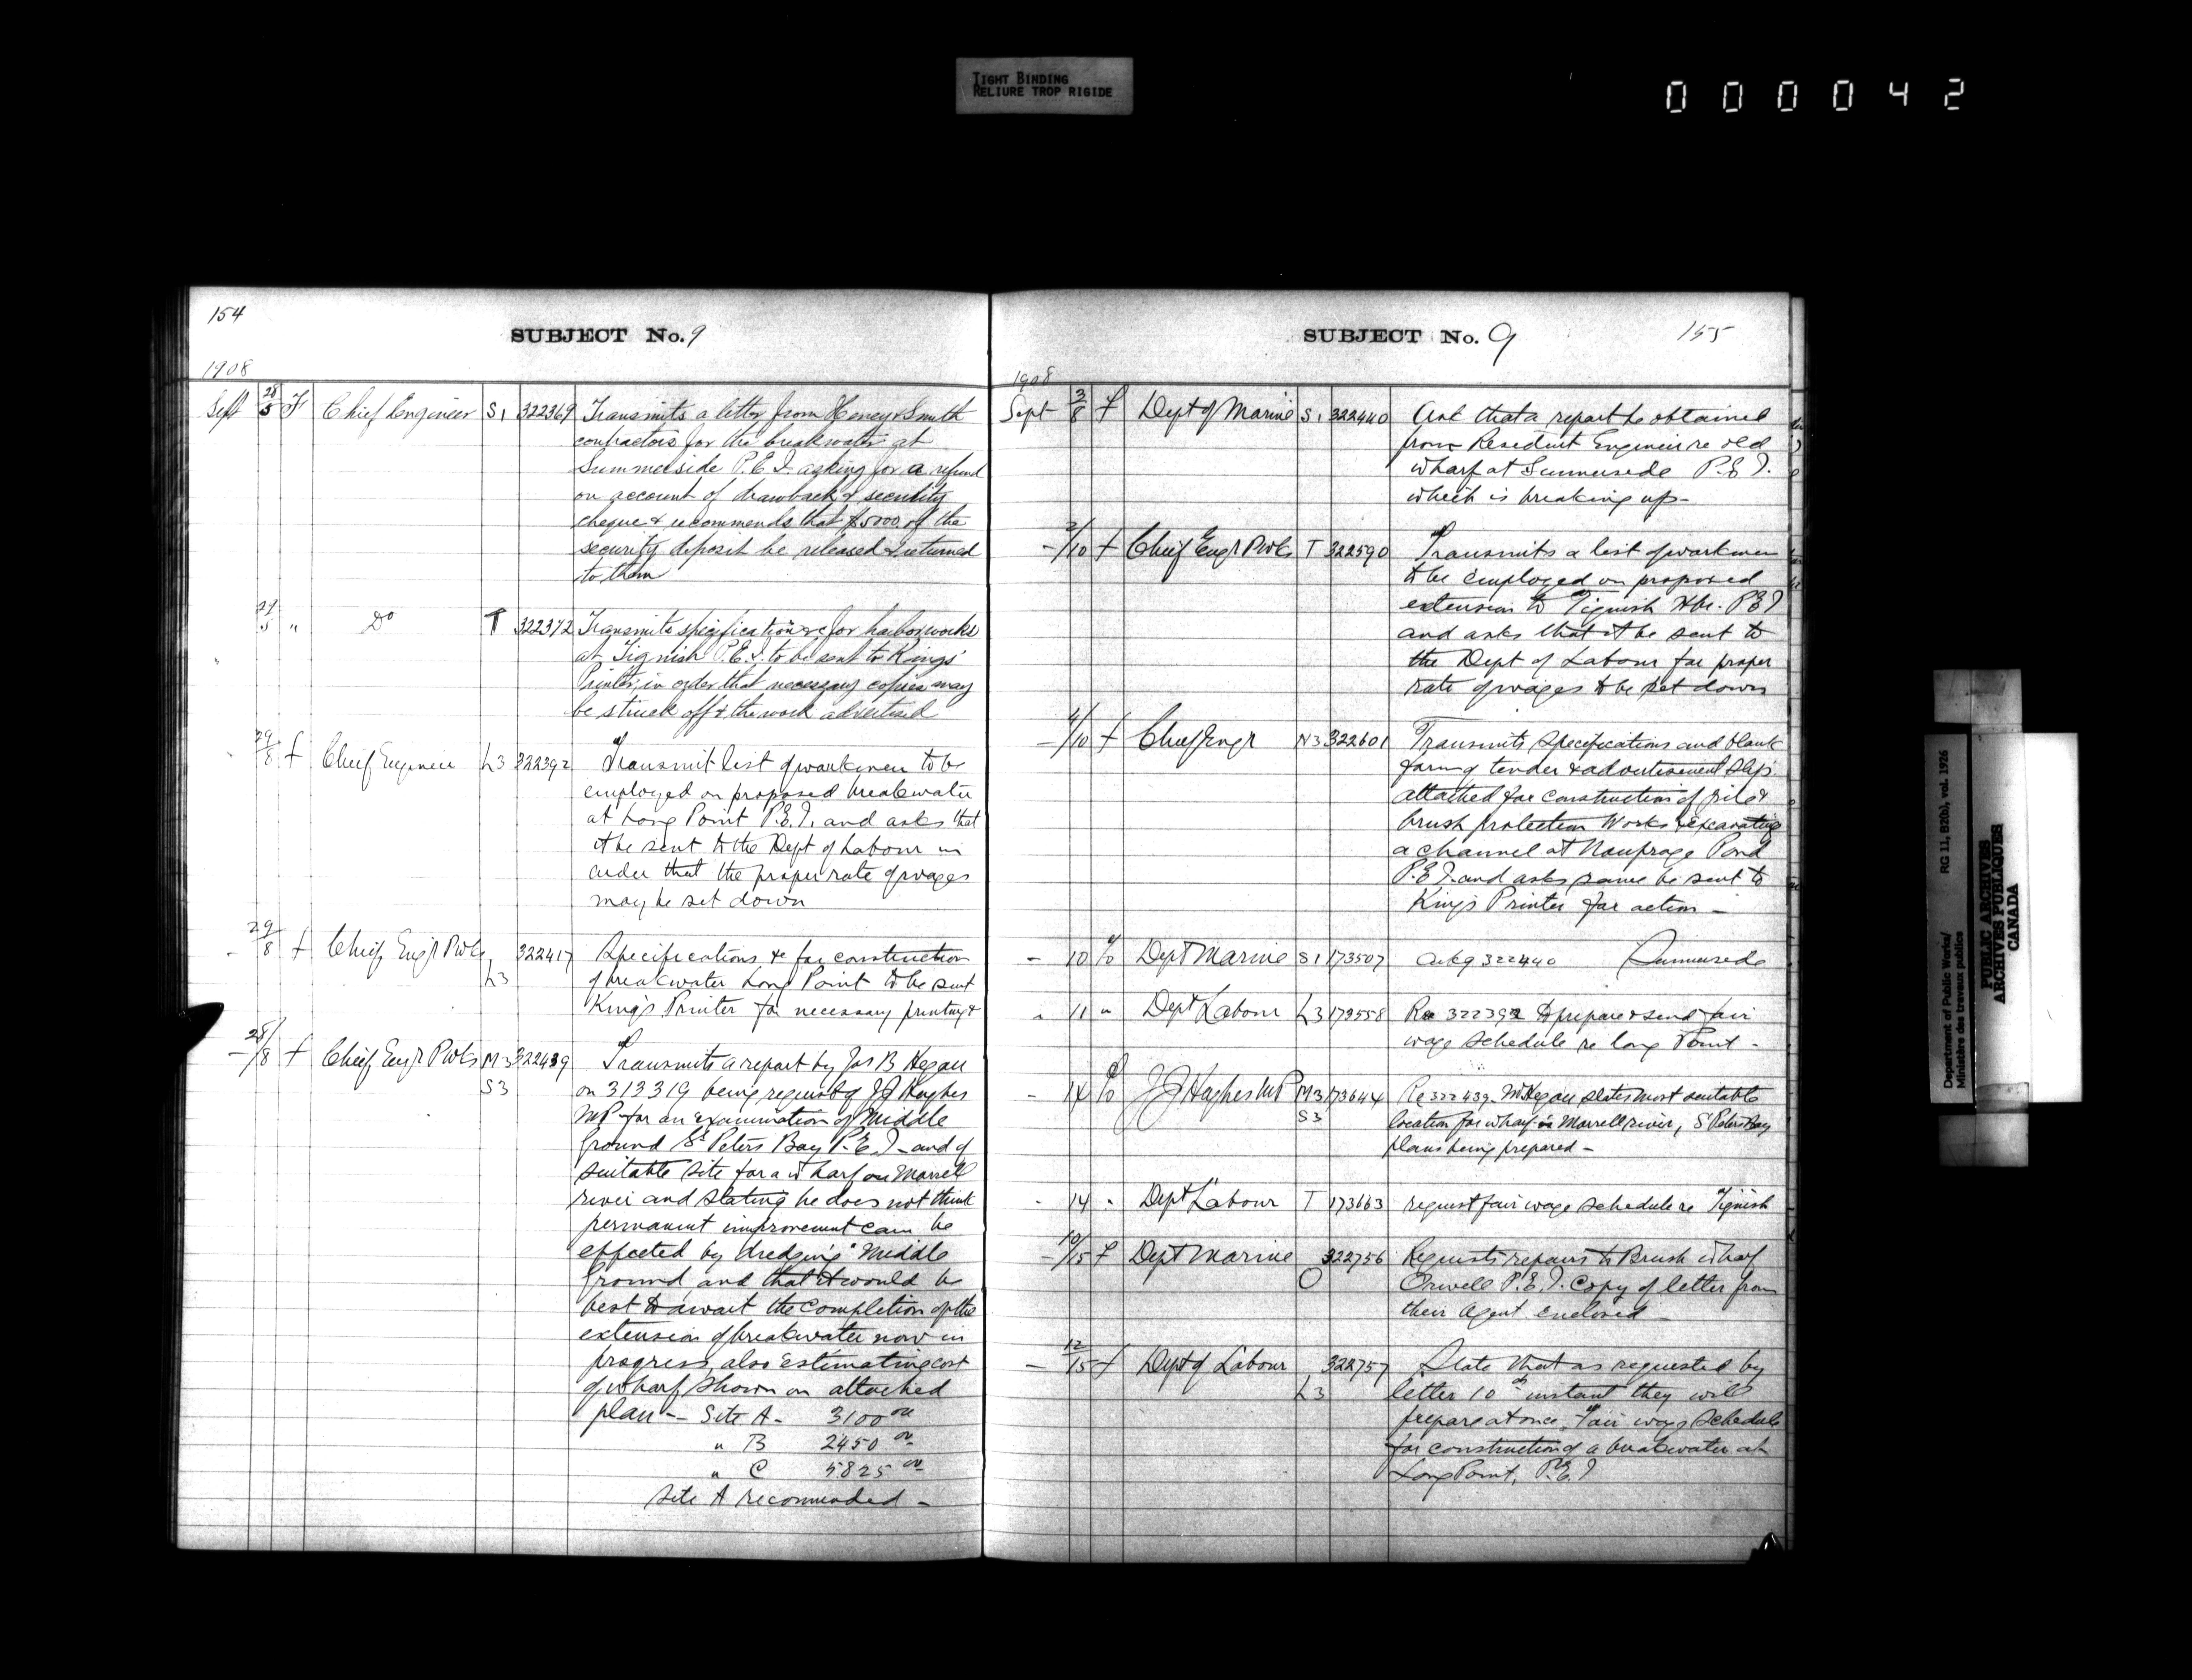 TIGHT BINDING
RELIURE TROP RIGIDE
000042
154
SUBJECT No. 9
1908
Sept 28/5 F Chief Engineer S1 322369 Transmits a letter from Heney & Smith
contractors for the breakwater at
Summerside P.E.I. asking for a refund
on account of drawback & security
cheque & recommends that $5000. of the
security deposit be released & returned
to them
29/5 " Do T 322372 Transmits specifications &c for harbor works
at Tignish P.E.I. to be sent to Kings'
Printer, in order that necessary copies may
be struck off & the work advertised
29/8 f Chief Engineer L3 322392 Transmit list of workmen to be
employed on proposed breakwater
at Long Point P.E.I. and asks that
it be sent to the Dept of Labour in
order that the proper rate of wages
may be set down
- 29/8 f Chief Engr PWks 322417 Specifications &c for construction
L3 of breakwater Long Point to be sent
King's Printer for necessary printing &
- 28/8 f Chief Engr PWks M3 322439 Transmits a report by Jas B Hegan
S3 on 313319 being request of JJ Hughes
MP for an examination of Middle
Ground St Peters Bay P.E.I - and of
suitable site for a wharf on Morrell
river and stating he does not think
permanent improvement can be
effected by dredging "Middle
Ground, and that it would be
best to await the completion of the
extension of breakwater now in
progress, also estimating cost
of wharf shown on attached
plan - Site A - 3100 00
" B 2450 00
" C 5825 00
Site A recommended -
SUBJECT No. 9
155
1908
Sept - 3/8 f Dept of Marine S1 322440 Ask that a report be obtained
from Resident Engineer re old
wharf at Summerside P.E.I.
which is breaking up -
- 2/10 f Chief Engr PWks T 322590 Transmits a list of workmen
to be employed on proposed
extension to Tignish Hbr. PEI
and asks that it be sent to
the Dept of Labour for proper
rate of wages to be set down
- 4/10 f Chief Engr N3 322601 Transmits specifications and blank
form of tender & advertisement slips
attached for construction of pile &
brush protection Works & excavating
a channel at Naufrage Pond
P.E.I. and asks same be sent to
King's Printer for action -
- 10 % Dept Marine S1 173507 Ackg 322440 Summerside
" 11 " Dept Labour L3 173558 Re 322392 to prepare & send fair
wage schedule re Long Point -
- 14 % JJ Hughes MP M3 173644 Re 322439 - Mr Hegan states most suitable
S3 location for wharf is Morrell river, St Peters Bay
plans being prepared -
- 14 " Dept Labour T 173663 request fair wage schedule re Tignish
- 10/15 f Dept Marine 322756 Requests repairs to Brush wharf
O Orwell P.E.I. Copy of letter from
their Agent enclosed -
- 12/15 f Dept of Labour 322757 State that as requested by
L3 letter 10th instant they will
prepare at once, Fair wage schedule
for construction of a breakwater at
Long Point, P.E.I
Department of Public Works/ RG 11, B2(b), vol. 1926
Ministère des travaux publics
PUBLIC ARCHIVES
ARCHIVES PUBLIQUES
CANADA